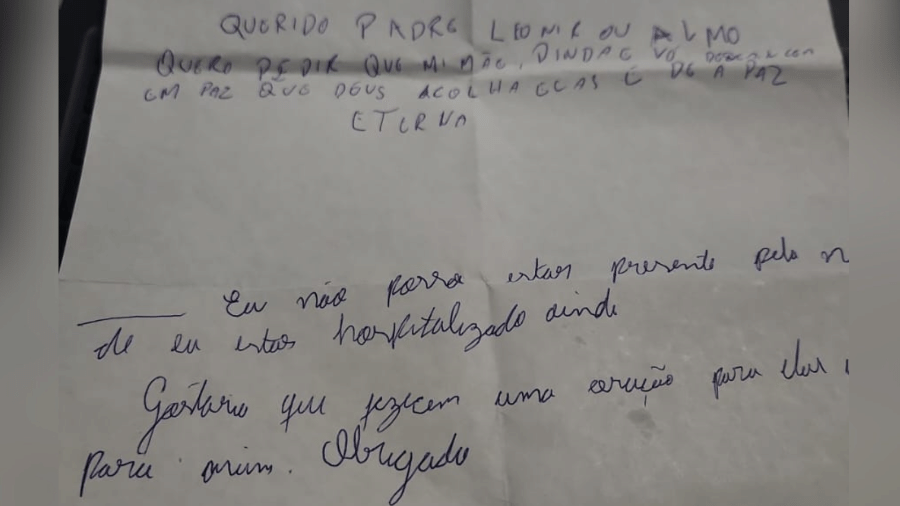 QUERIDO PADRE LEONIR OU ALMO
QUERO PEDIR QUE MI MÃE, DINDA E VÓ
EM PAZ QUE DEUS ACOLHA ELAS E DE A PAZ
ETERNA
Eu não possa estar presente pelo
de eu estar hospitalizado ainda
Gostaria que fizecem uma oração para elas
para mim. Obrigado